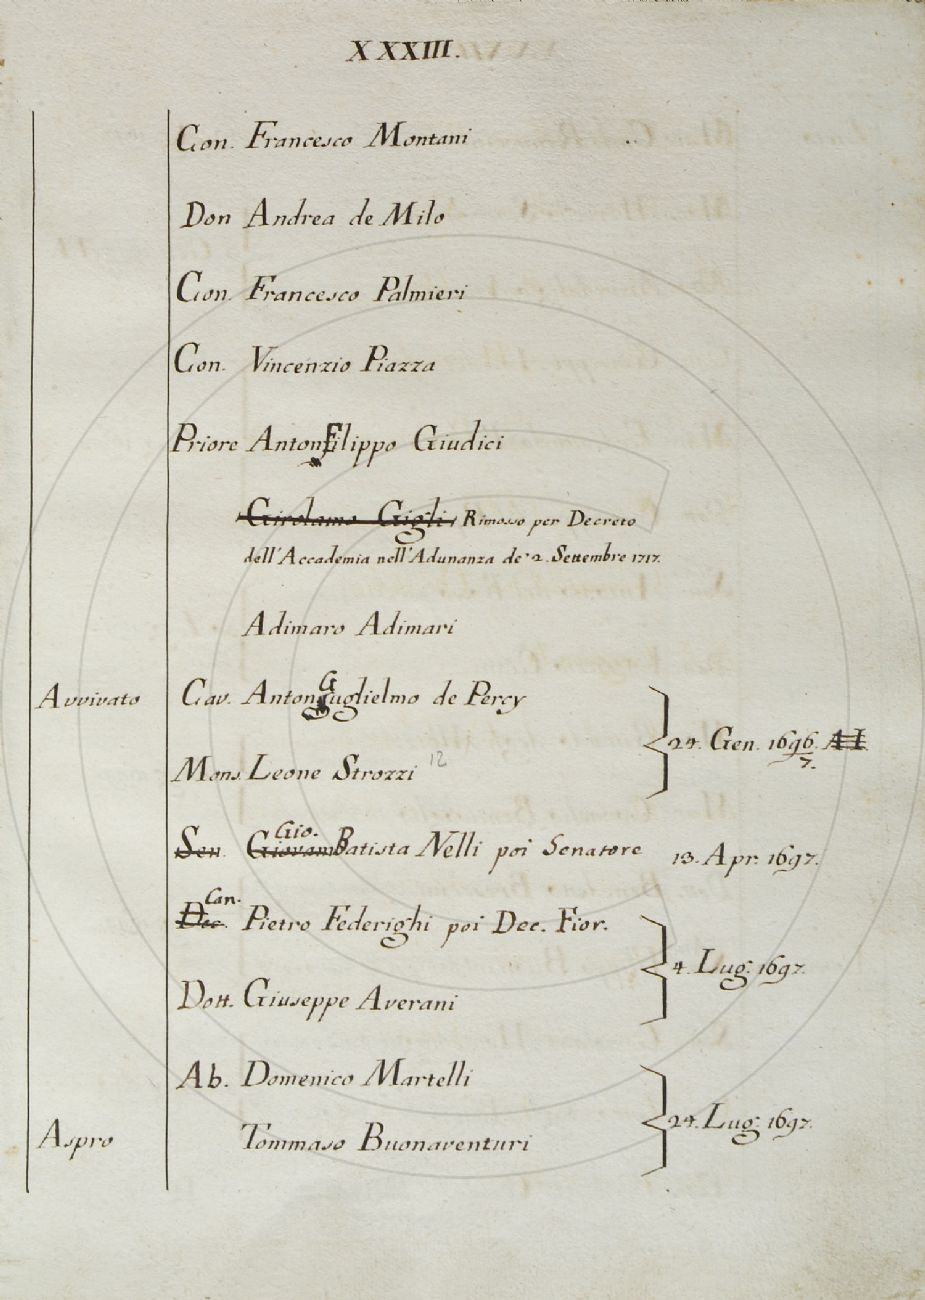 XXXIII.
Con. Francesco Montani
Don Andrea de Milo
Con. Francesco Palmieri
Con. Vincenzio Piazza
Priore AntonFilippo Giudici
Girolamo Gigli Rimosso per Decreto
dell'Accademia nell'Adunanza de' 2. Settembre 1717.
Adimaro Adimari
Avvivato Cav. AntonGuglielmo de Percy
24. Gen. 1696/7.
Mons. Leone Strozzi 12
Gio.
Sen. GiovamBatista Nelli poi Senatore 13. Apr. 1697.
Can.
Dec. Pietro Federighi poi Dec. Fior.
4. Lug. 1697.
Dott. Giuseppe Averani
Ab. Domenico Martelli
24. Lug. 1697.
Aspro Tommaso Buonaventuri